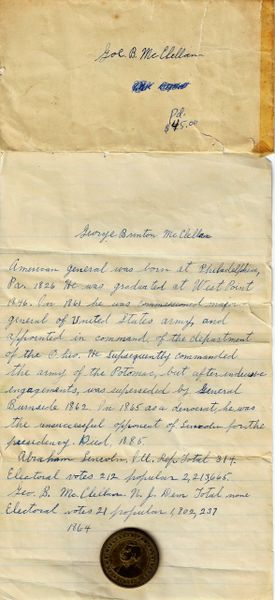 Geo. B. McClellan
Pd.
$45.00
George Brinton McClellan
American general was born at Philadelphia,
Pa. 1826 He was graduated at West Point
1846. In 1861 he was commissioned major
general of United States army, and
appointed in command of the department
of the Ohio. He Supsequently commanded
the army of the Potomac, but after
engagements, was superseded by General
Burnside 1862. In 1865 as a democrat, he was
the unsuccessful opponent of Lincoln for the
presidency. Died. 1885.
Abraham Lincoln, Ill. Rep. Total 314.
Electoral votes 212 popular 2,213,665.
Geo. B. McClellan. N. J. Dem Total none
Electoral votes 21 popular 1,802,237
1864